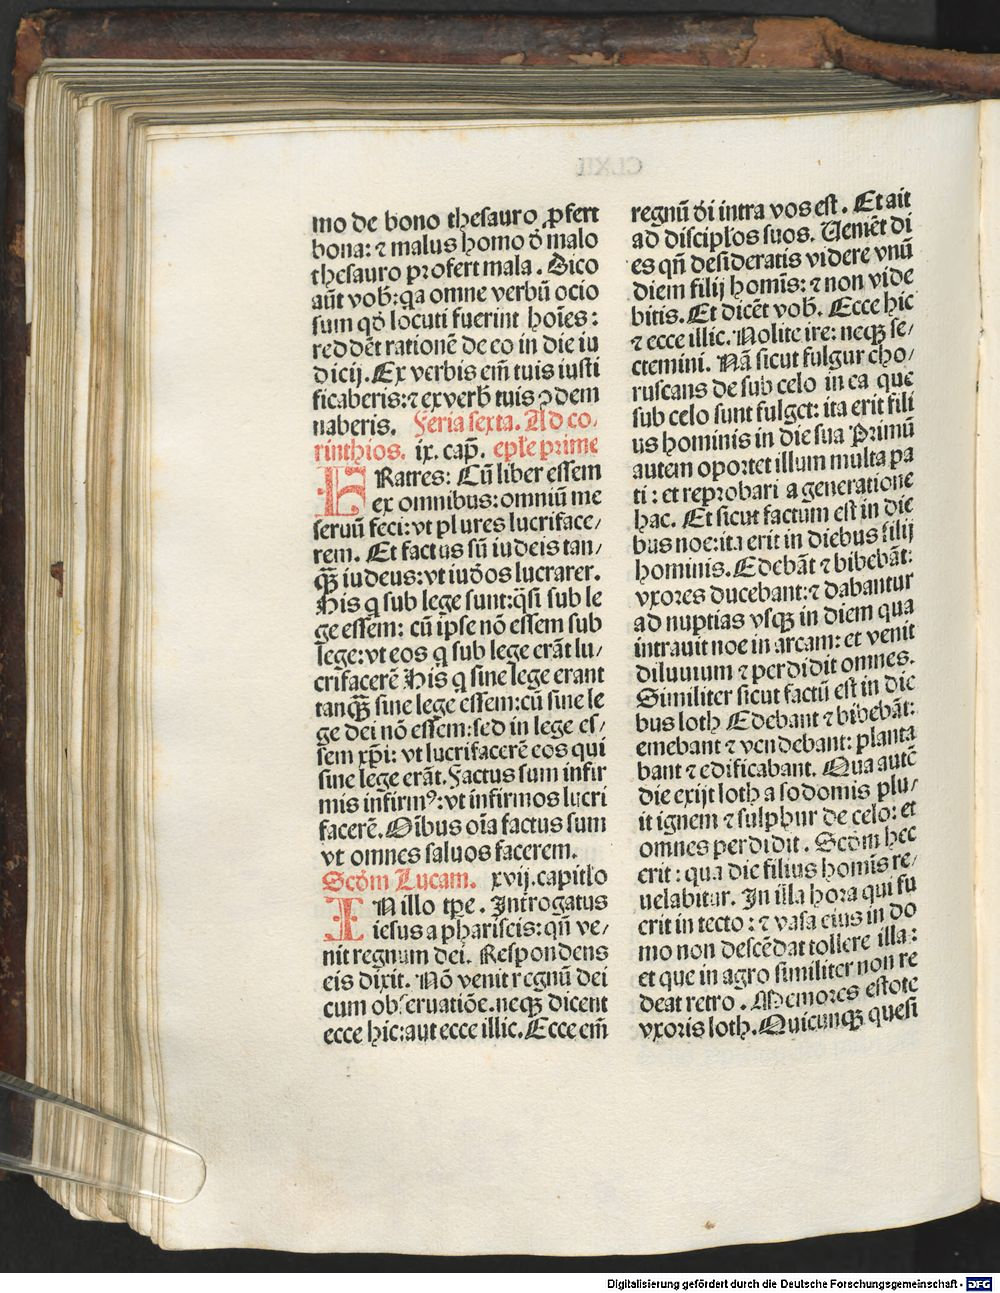 mo de bono thesauro ꝓfert
bona: ⁊ malus homo d̄ malo
thesauro profert mala. Dico
aūt vob̄: qa omne verbū ocio
sum qd̄ locuti fuerint hoīes:
reddēt rationē de eo in die iu
dicij. Ex verbis em̄ tuis iusti
ficaberis: ⁊ ex verb̄ tuis ꝯdem
naberis. Feria sexta. Ad co,
rinthios. ix. cap̄. ep̄le prime
FRatres: Cū liber essem
ex omnibus: omniū me
seruū feci: vt plures lucriface/
rem. Et factus sū iudeis tan/
qꝫ̄ iudeus: vt iud̄os lucrarer.
His q̄ sub lege sunt: q̄si sub le
ge essem: cū ipse nō essem sub
lege: vt eos q̄ sub lege erāt lu/
crifacerē His q̄ sine lege erant
tanqꝫ̄ sine lege essem: cū sine le
ge dei nō essem: sed in lege es/
sem xp̄i: vt lucrifacerē eos qui
sine lege erāt. Factus sum infir
mis infirmꝰ: vt infirmos lucri
facerē. Oībus oīa factus sum
vt omnes saluos facerem.
Scd̄m Lucam. xvij. capitl̄o
IN illo tp̄e. Introgatus
iesus a phariseis: qn̄ ve/
nit regnum dei. Respondens
eis dixit. Nō venit regnū dei
cum obseruatiōe. neqꝫ dicent
ecce hic: aut ecce illic. Ecce em̄
CLXII
regnū d̄i intra vos est. Et ait
ad discipl̄os suos. Uenīet di
es qn̄ desideratis videre vnū
diem filij homīs: ⁊ non vide
bitis. Et dicēt vob̄. Ecce hic
⁊ ecce illic. Nolite ire: neqꝫ se/
ctemini. Nā sicut fulgur cho/
ruscans de sub celo in ea que
sub celo sunt fulget: ita erit fili
us hominis in die sua Primū
autem oportet illum multa pa
ti: et reprobari a generatione
hac. Et sicut factum est in die
bus noe: ita erit in diebus filij
hominis. Edebāt ⁊ bibebāt:
vxores ducebant: ⁊ dabantur
ad nuptias vsqꝫ in diem qua
intrauit noe in arcam: et venit
diluuium ⁊ perdidit omnes.
Similiter sicut factū est in die
bus loth Edebant ⁊ bibebāt:
emebant ⁊ vendebant: planta
bant ⁊ edificabant. Qua autē
die exijt loth a sodomis plu/
it ignem ⁊ sulphur de celo: et
omnes perdidit. Scd̄m hec
erit: qua die filius homīs re/
uelabitur. In illa hora qui fu
erit in tecto: ⁊ vasa eius in do
mo non descēdat tollere illa:
et que in agro similiter non re
deat retro. Memores estote
vxoris loth. Quicunqꝫ quesi
Digitalisierung gefördert durch die Deutsche Forschungsgemeinschaft - DFG